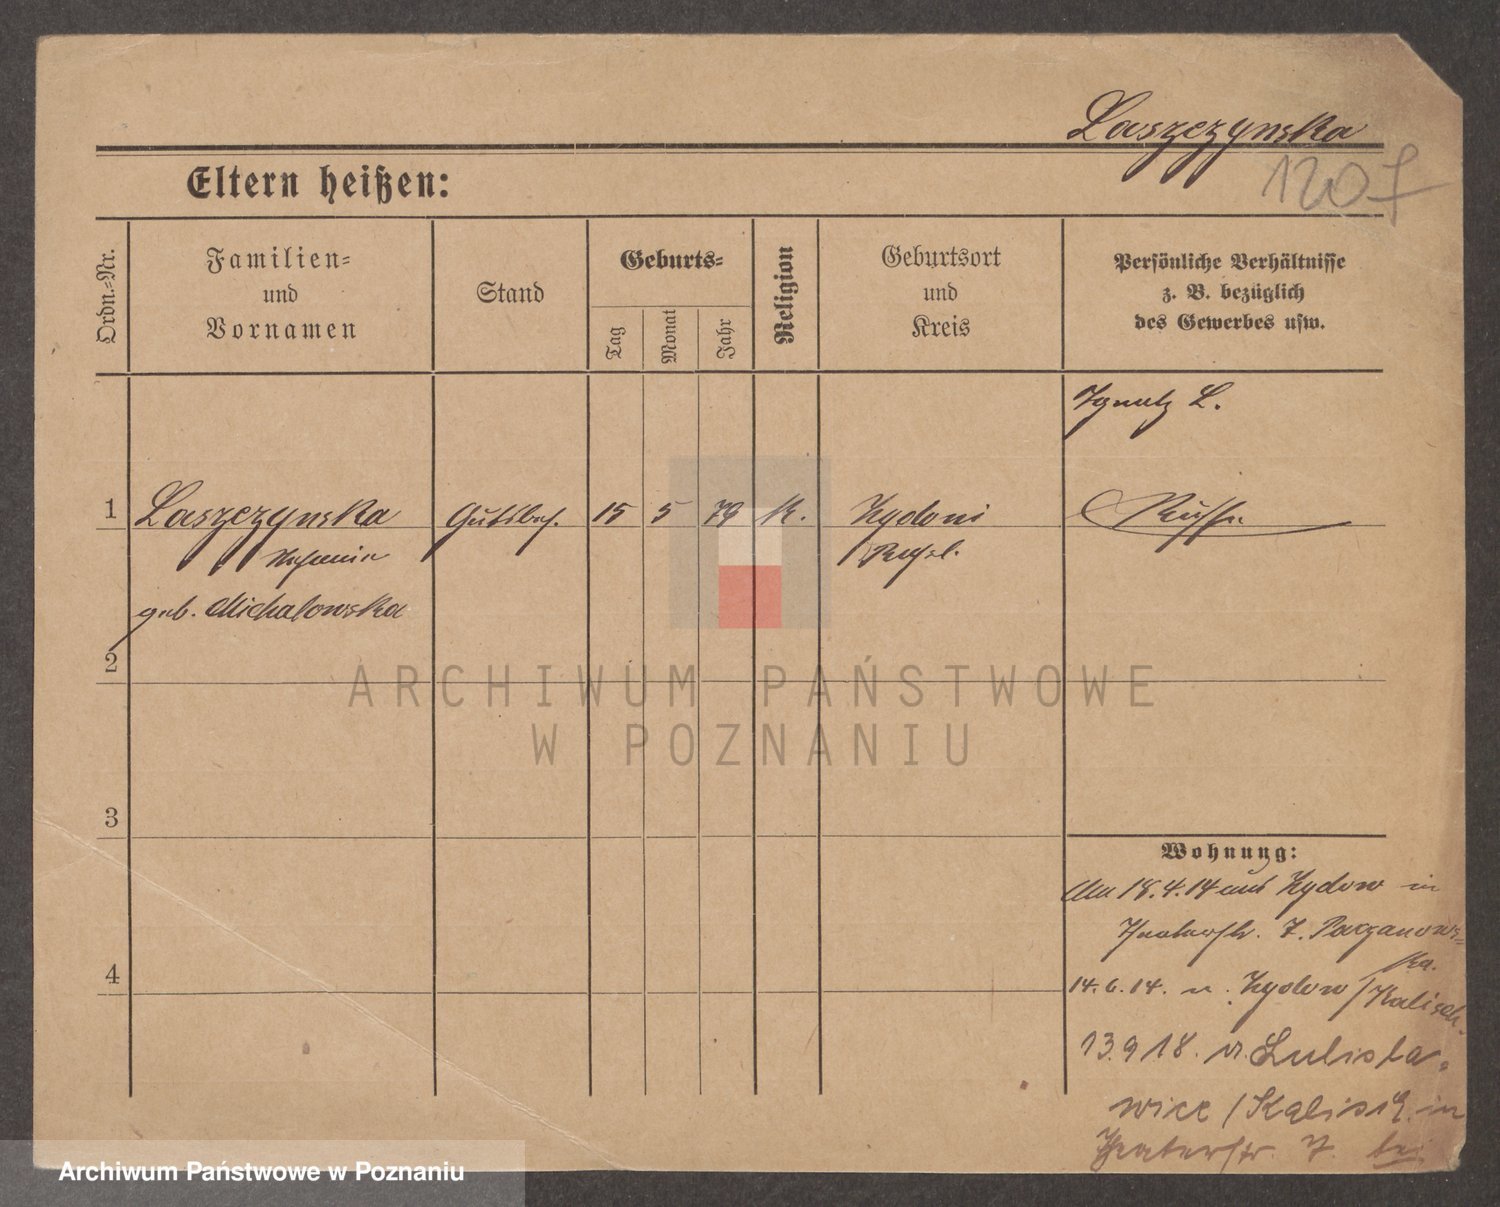 Laszczynska
1207
Eltern heißen:
Ordn.-Nr.
Familien-
und
Vornamen
Stand
Geburts-
Tag
Monat
Jahr
Religion
Geburtsort
und
Kreis
Persönliche Verhältnisse
z. B. bezüglich
des Gewerbes usw.
Ignatz L.
1 Laszczynska Gutsbes. 15 5 79 K. Zydow
geb. Michalowska
2
3
4
Wohnung:
Am 18.4.14 aus Zydow in
Theaterstr. 7. Parzanows-
ka.
14.6.14. n. Zydow / Kalisch.
13.9 18. v. Lulisla-
wice / Kalisch in
Theaterstr. 7. bei
ARCHIWUM PAŃSTWOWE
W POZNANIU
Archiwum Państwowe w Poznaniu